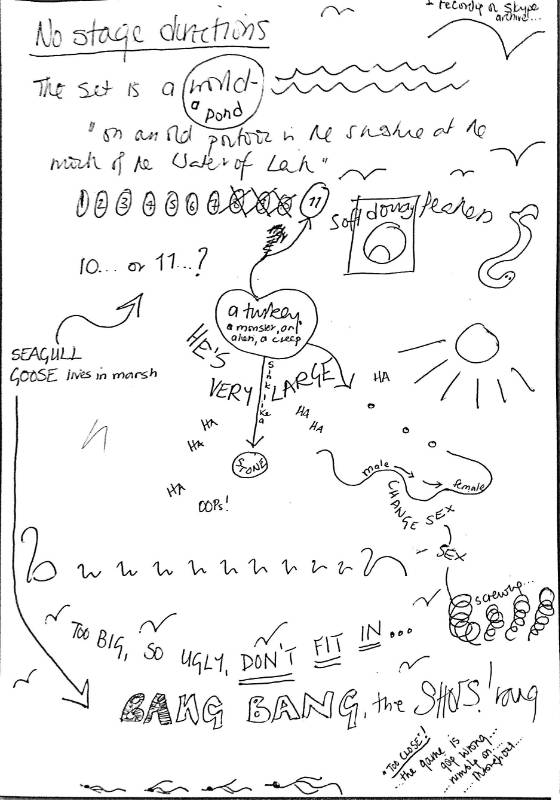 + recording or Skype
archive...
No stage directions
The set is a world -
a pond
"on an old portoir in the sunshine at the
mouth of the Water of Leith"
1 2 3 4 5 6 7 8 9 10 11
soft downy feathers
10... or 11...?
a turkey
a monster, an
alien, a creep
HE'S
VERY LARGE
Sink like a
STONE
SEAGULL
GOOSE lives in marsh
HA
HA
HA
HA
HA
HA
OOPS!
male → → female
CHANGE SEX
- SEX
screwing...
TOO BIG, SO UGLY, DON'T FIT IN...
BANG BANG, the SHOTS! rang
"TOO CLOSE"!
...the game is
gone wrong...
...throughout...